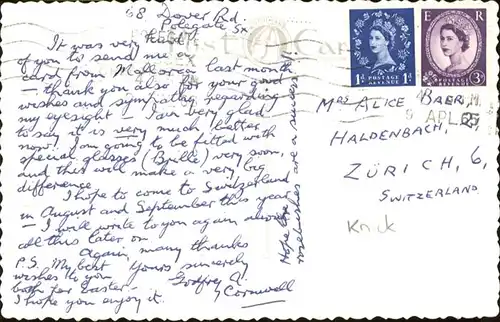 68 Dover Rd.
It was very kind
of you to send me a
card from Mallorca last month
— thank you also for your good
wishes and sympathy regarding
my eyesight — I am very glad
to say it is very much better
now! I am going to be fitted with
special glasses (Brille) very soon,
and this will make a very big
difference.
I hope to come to Switzerland
in August and September this year
— I will write to you again about
all this later on.
Again, many thanks
Yours sincerely
Godfrey A.
Cornwell
P.S. My best
wishes to you
both for Easter –
I hope you enjoy it.
Hope the
rosebushes are a success
Post Ca
1D POSTAGE REVENUE 1D
E R
POSTAGE REVENUE 3D
MRS ALICE BAER,
HALDENBACH,
ZÜRICH, 6,
SWITZERLAND
9 APL